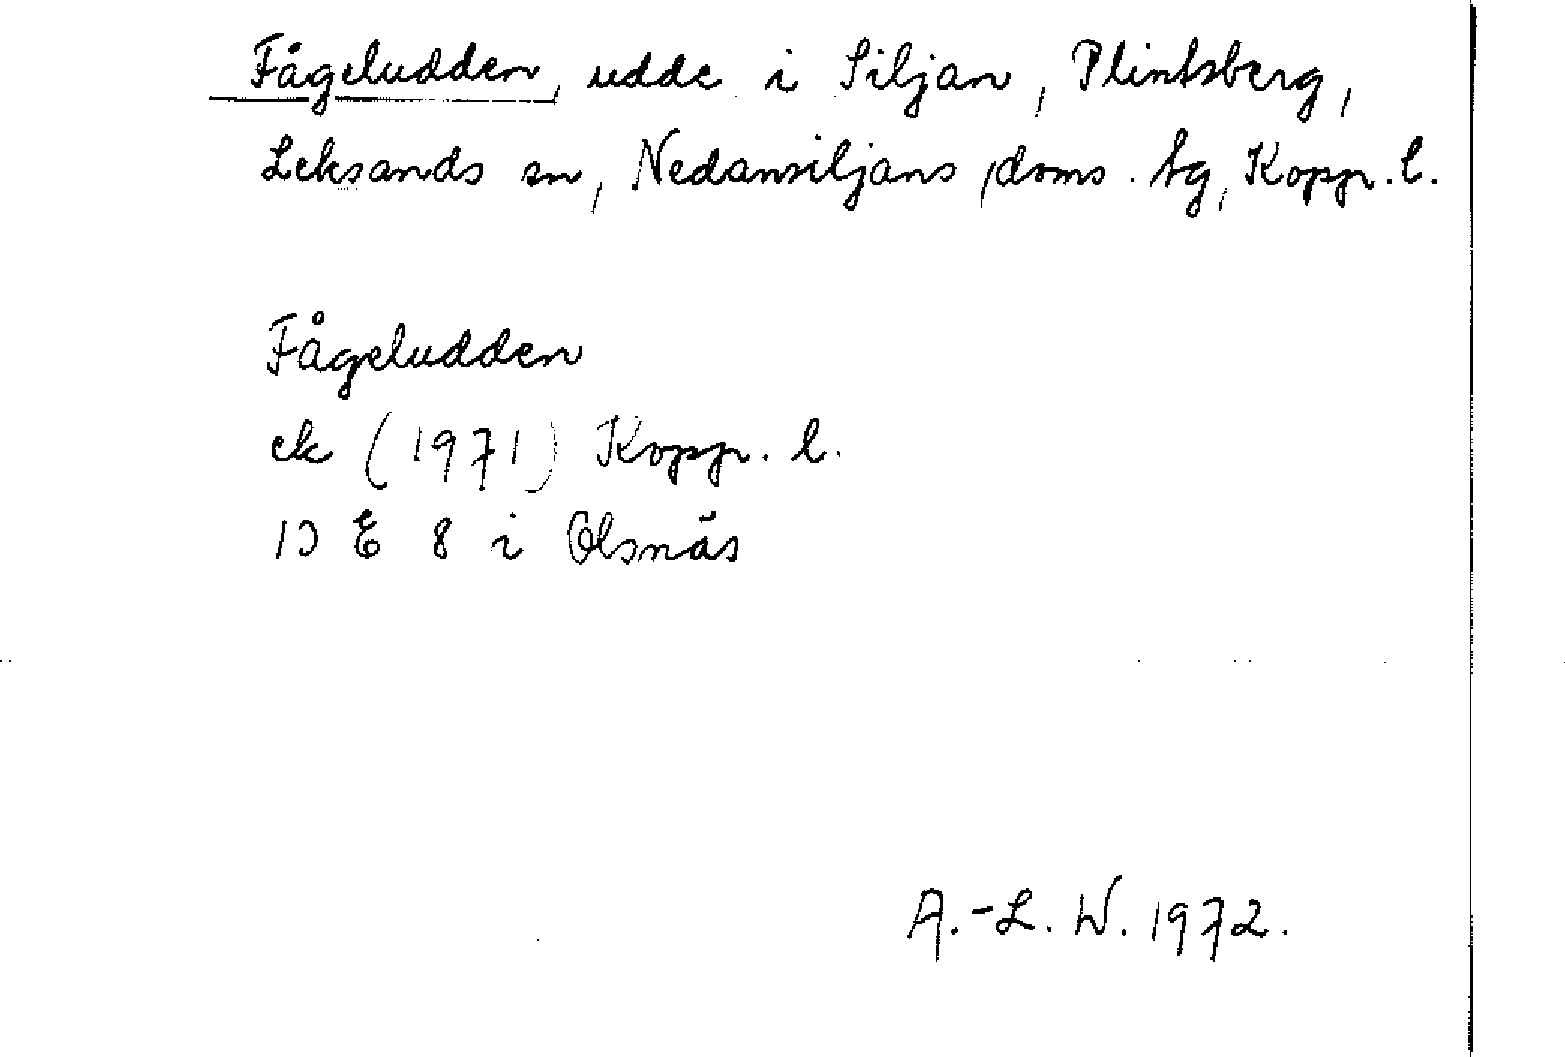 Fågeludden, udde i Siljan, Plintsberg,
Leksands sn, Nedansiljans doms. tg, Kopp. l.
Fågeludden
ek (1971) Kopp. l.
13 E 8 i Olsnäs
A.-L. W. 1972.